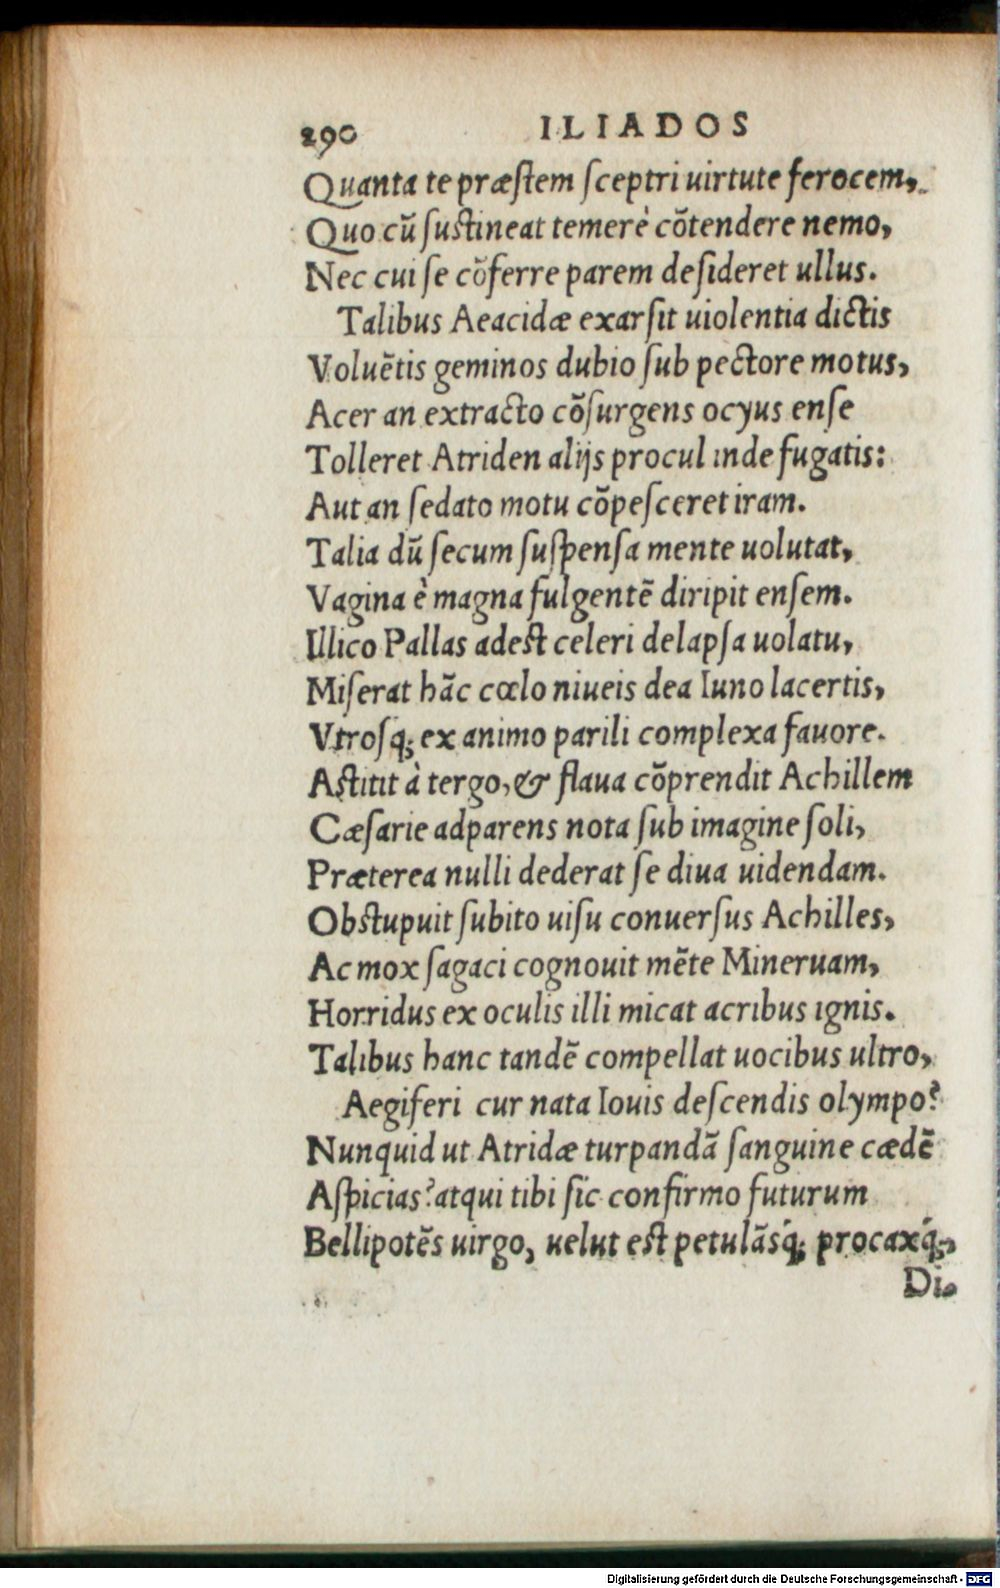 290 ILIADOS
Quanta te præſtem ſceptri uirtute ferocem,
Quo cũ ſuſtineat temerè cõtendere nemo,
Nec cui ſe cõferre parem deſideret ullus.
Talibus Aeacidæ exarſit uiolentia dictis
Voluẽtis geminos dubio ſub pectore motus,
Acer an extracto cõſurgens ocyus enſe
Tolleret Atriden alijs procul inde fugatis:
Aut an ſedato motu cõpeſceret iram.
Talia dũ ſecum ſuſpenſa mente uolutat,
Vagina è magna fulgentẽ diripit enſem.
Illico Pallas adeſt celeri delapſa uolatu,
Miſerat hãc cœlo niueis dea Iuno lacertis,
Vtroſq; ex animo parili complexa fauore.
Aſtitit à tergo, & flaua cõprendit Achillem
Cæſarie adparens nota ſub imagine ſoli,
Præterea nulli dederat ſe diua uidendam.
Obſtupuit ſubito uiſu conuerſus Achilles,
Ac mox ſagaci cognouit mẽte Mineruam,
Horridus ex oculis illi micat acribus ignis.
Talibus hanc tandẽ compellat uocibus ultro,
Aegiferi cur nata Iouis deſcendis olympo?
Nunquid ut Atridæ turpandã ſanguine cædẽ
Aſpicias? atqui tibi ſic confirmo futurum
Bellipotẽs uirgo, uelut eſt petulãsq́; procaxq́;,
Di-
Digitalisierung gefördert durch die Deutsche Forschungsgemeinschaft - DFG